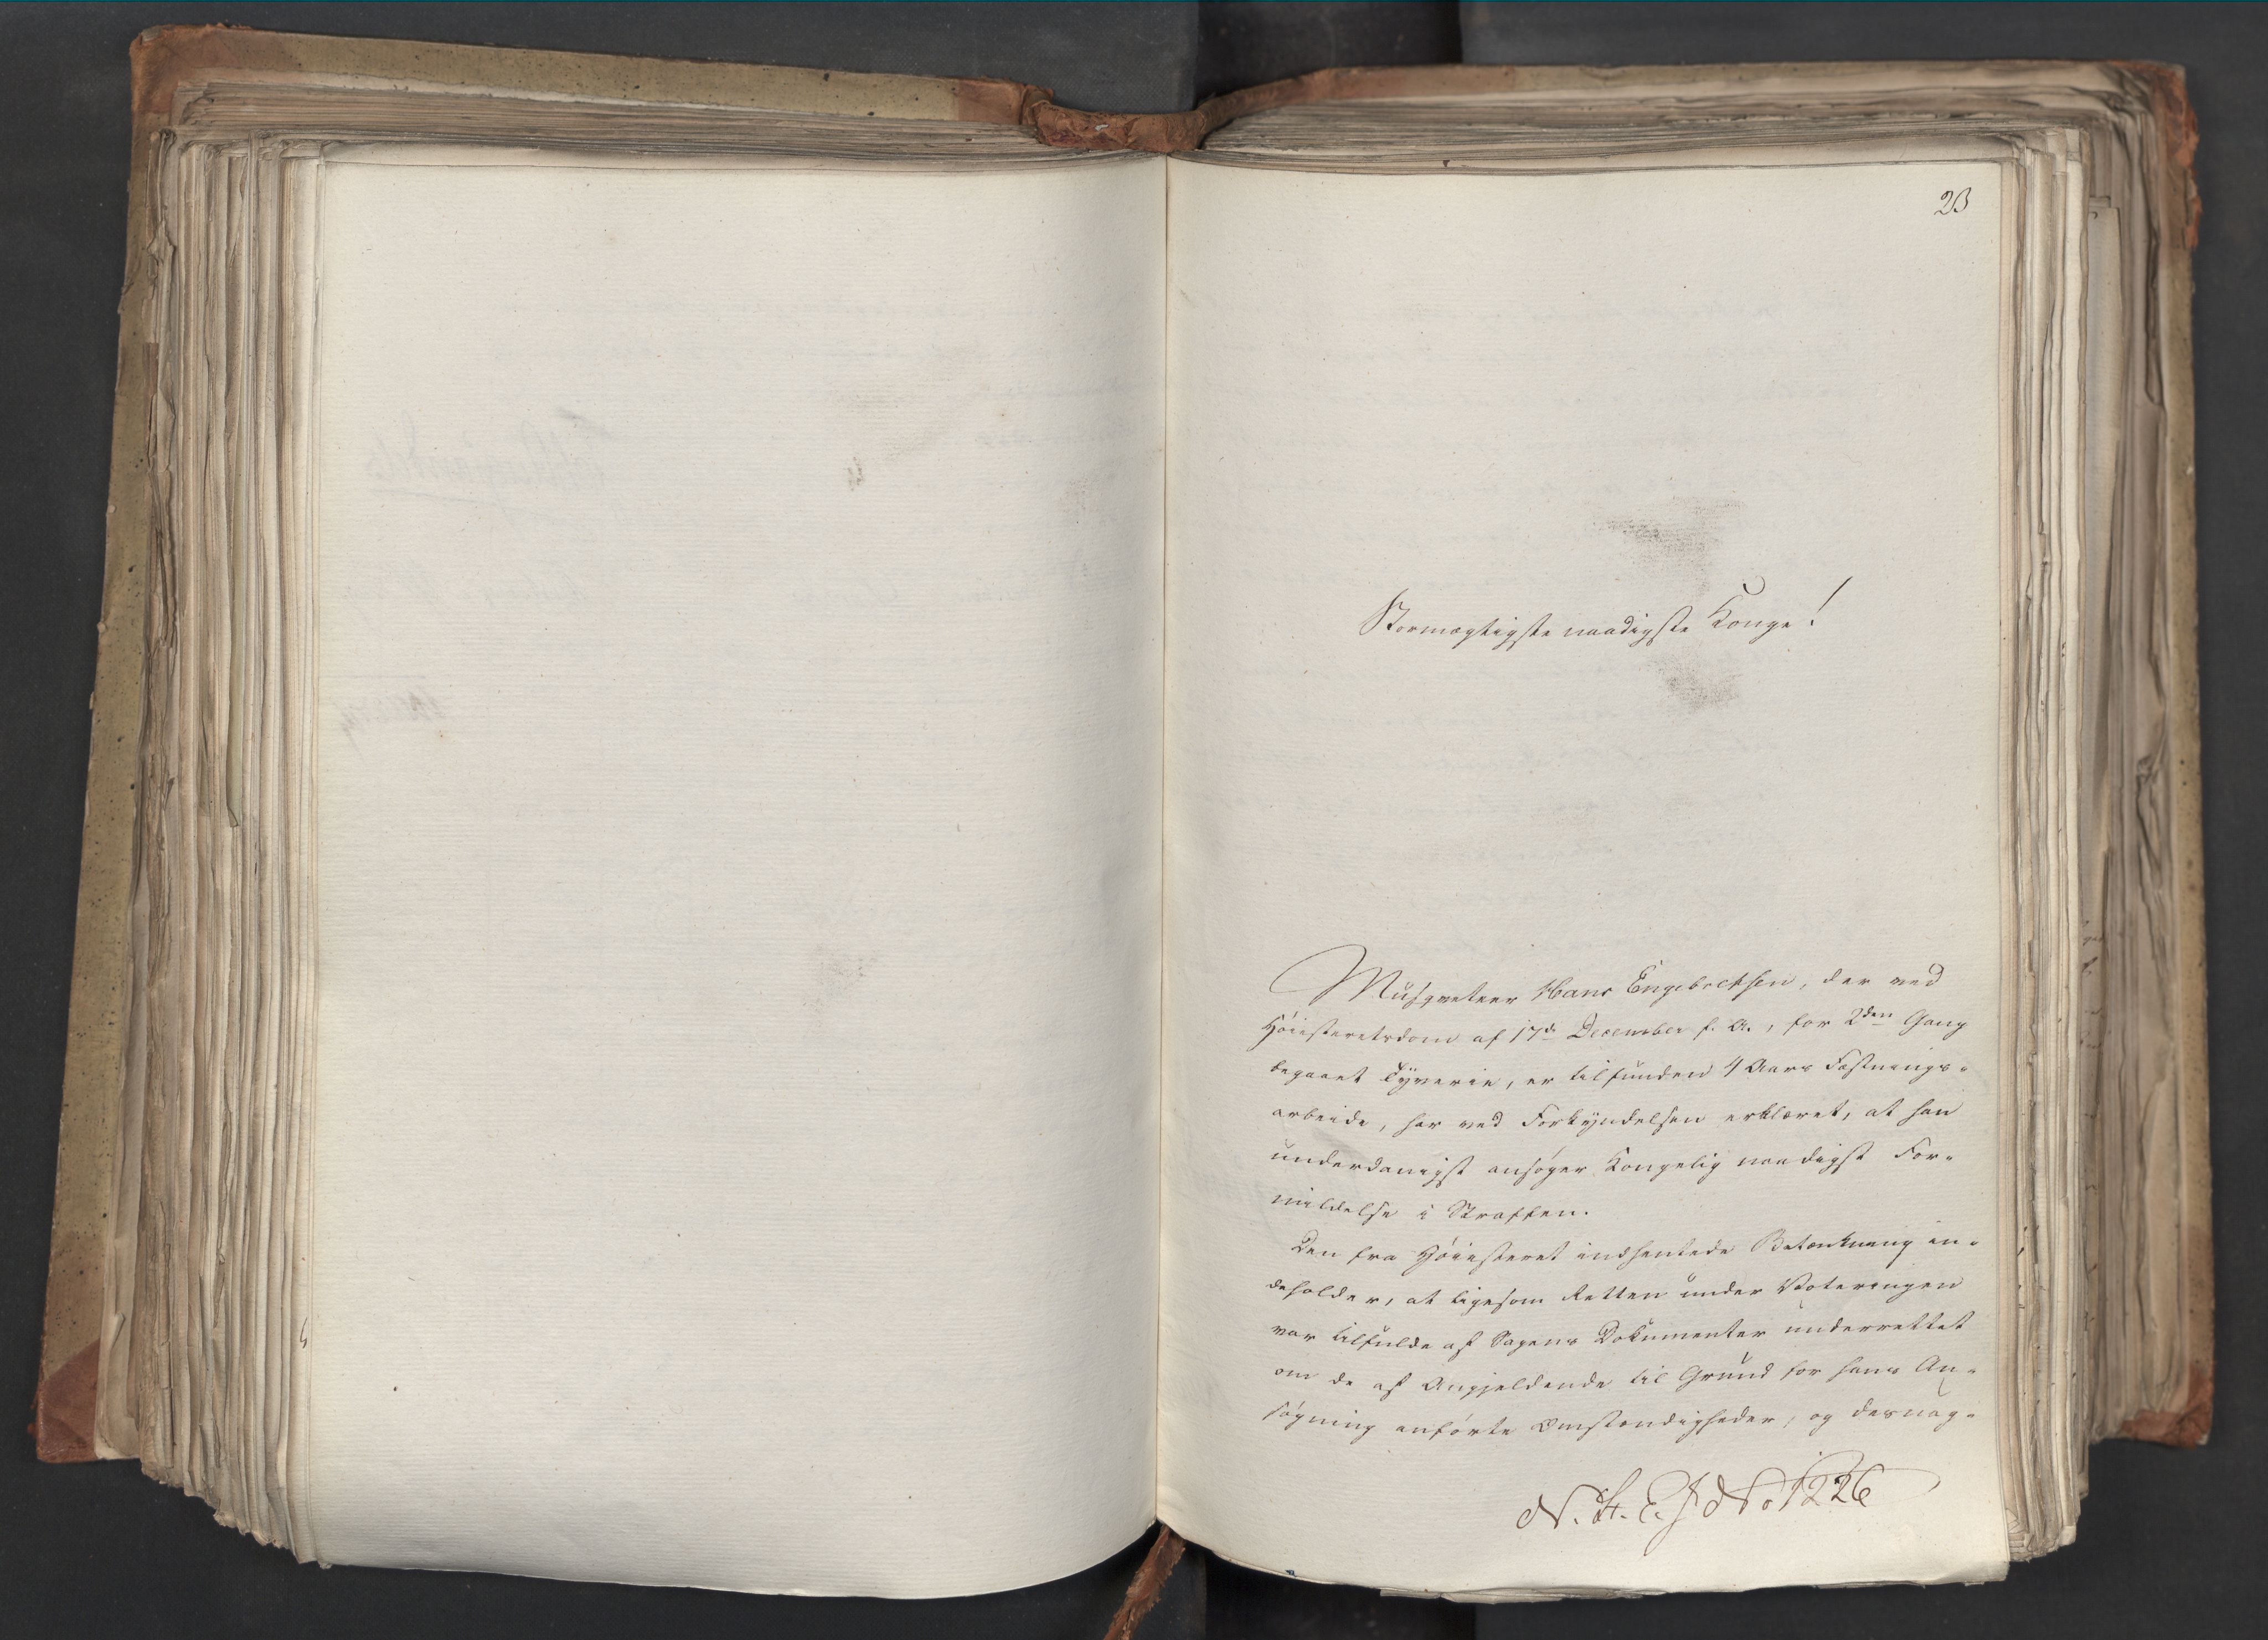 23
Stormægtigste naadigste Konge!
Musqveteer Hans Engebrethsen, der ved
Høiesteretsdom af 17de December f. A., for 2den Gang
begaaet Tyverie, er tilfunden 4 Aars Fæstnings-
arbeide, har ved Forkyndelsen erklæret, at han
underdanigst ansøger Kongelig naadigst For-
mildelse i Straffen.
Den fra Høiesteret indhentede Betænkning in-
deholder, at ligesom Retten under Voteringen
var tilfulde af Sagens Dokumenter underrettet
om de af Angjeldende til Grund for hans An-
søgning anførte Omstændigheder, og desuag-
N. H. E. J No 1226